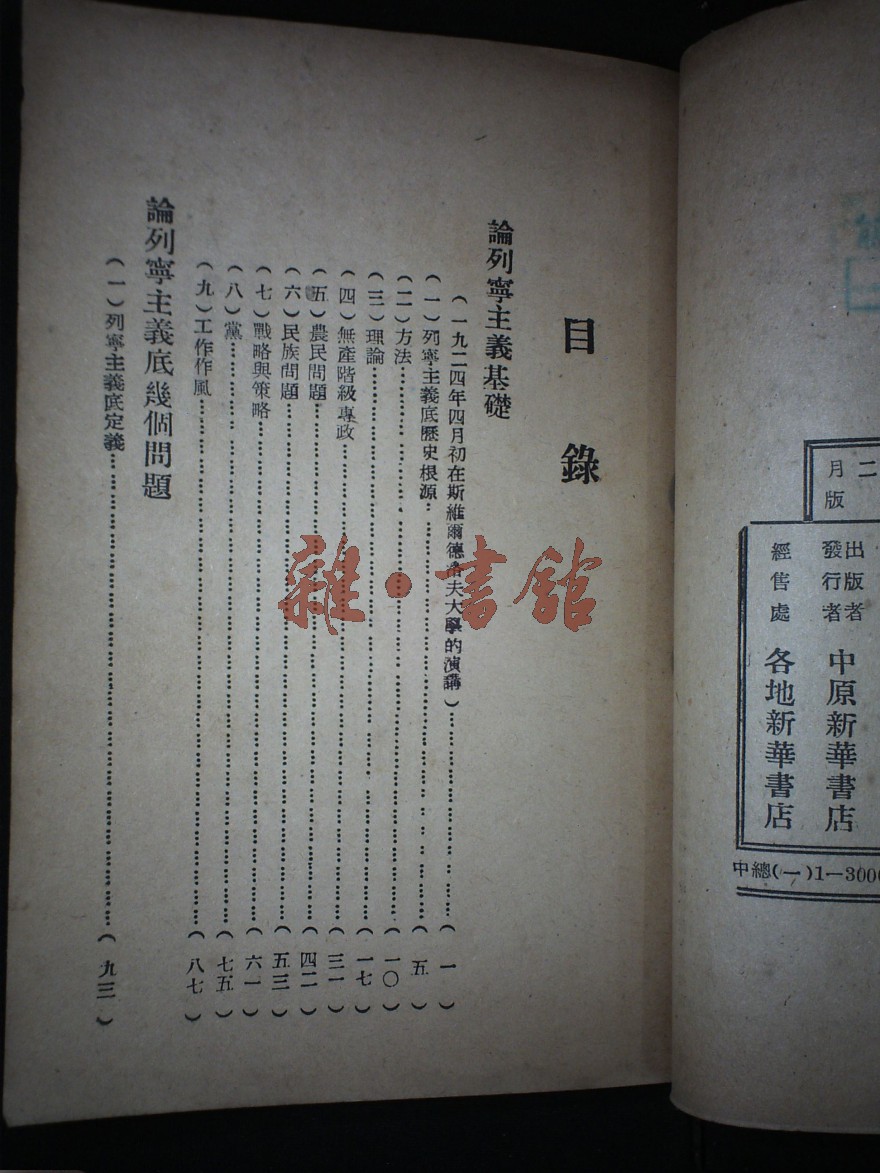 二
月版
出版者
發行者 中原新華書店
經售處 各地新華書店
中總(一)1—3000
目錄
論列寧主義基礎
（一九二四年四月初在斯維爾德洛夫大學的演講）……（一）
（一）列寧主義底歷史根源……（五）
（二）方法……（一〇）
（三）理論……（一七）
（四）無產階級專政……（三一）
（五）農民問題……（四二）
（六）民族問題……（五三）
（七）戰略與策略……（六一）
（八）黨……（七五）
（九）工作作風……（八七）
論列寧主義底幾個問題
（一）列寧主義底定義……（九三）
雜·書館